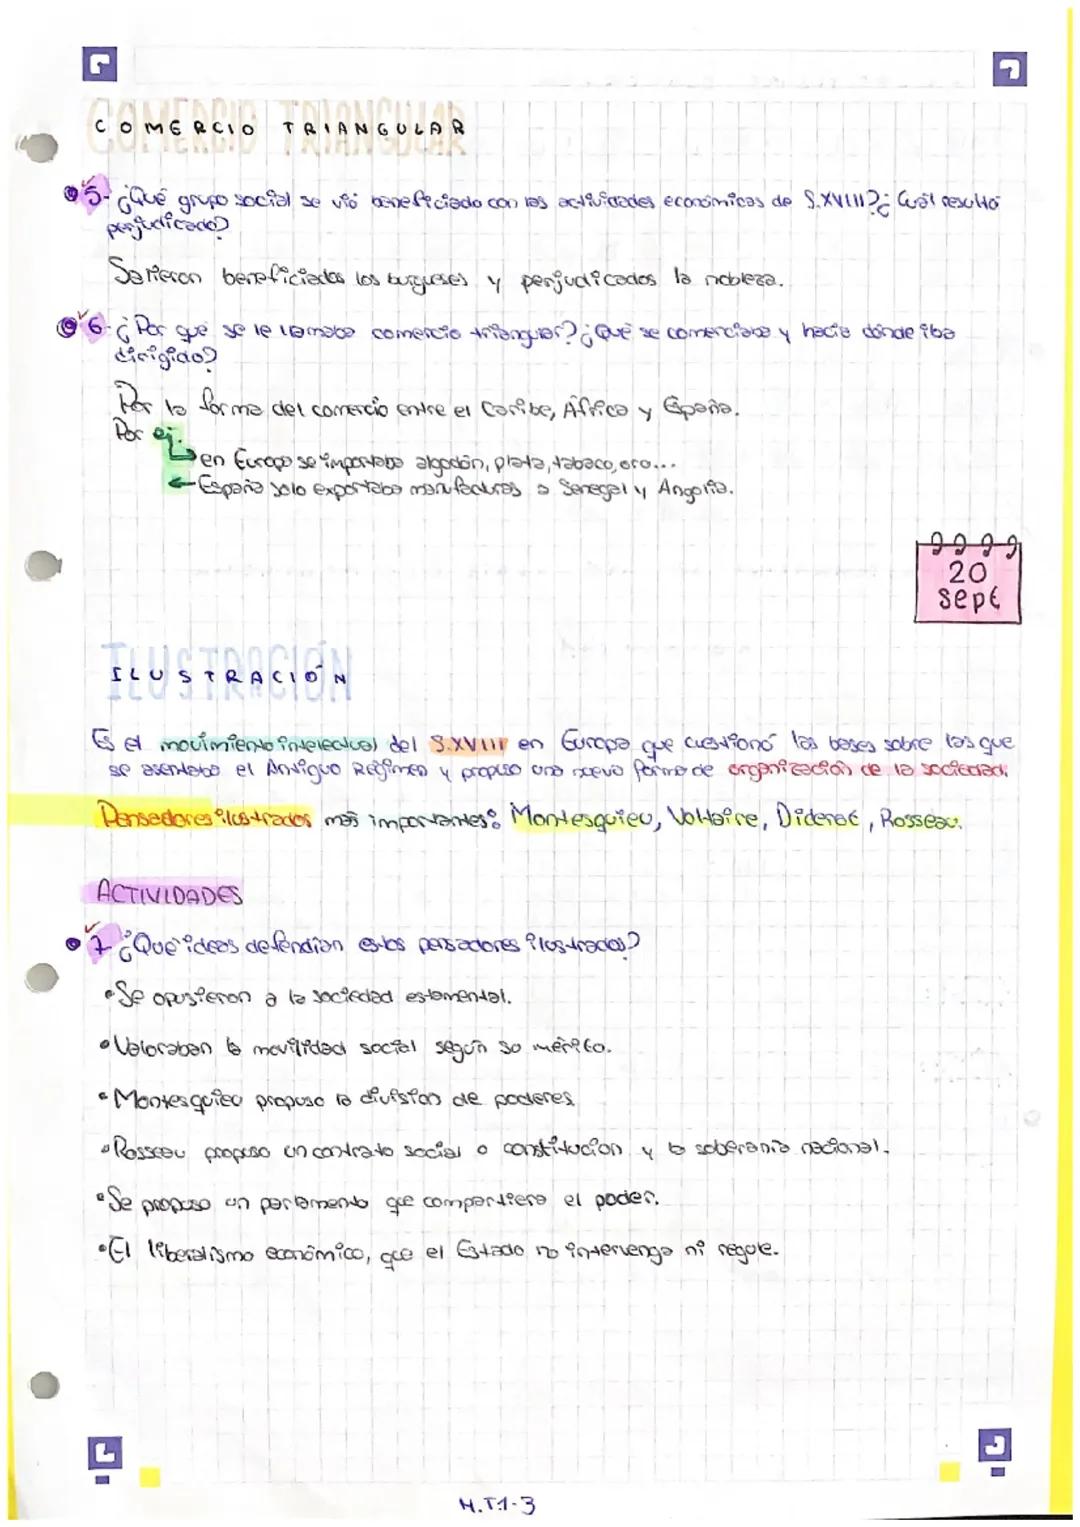 COMERCIO TRIANGULAR
5- ¿Qué grupo social se vió beneficiado con las actividades económicas de S.XVIII? ¿Cuál resultó
perjudicado?
Salieron beneficiados los burgueses y perjudicados la nobleza.
6- ¿Por qué se le llamaba comercio triangular? ¿Qué se comerciaba y hacia dónde iba
dirigido?
Por la forma del comercio entre el Caribe, África y España.
Por ej.
en Europa se importaba algodón, plata, tabaco, oro...
España solo exportaba manufacturas a Senegal y Angoria.
20
sept
ILUSTRACIÓN
Es el movimiento intelectual del S.XVIII en Europa que cuestionó las bases sobre las que
se asentaba el Antiguo Régimen y propuso una nueva forma de organización de la sociedad.
Pensadores ilustrados más importantes: Montesquieu, Voltaire, Diderot, Rosseau.
ACTIVIDADES
7 ¿Que ideas defendían estos pensadores ilustrados?
•Se opusieron a la sociedad estamental.
•Valoraban la movilidad social según su mérito.
•Montesquieu propuso la división de poderes
•Rosseau propuso un contrato social o constitución y la soberanía nacional.
•Se propuso un parlamento que compartiera el poder.
•El liberalismo económico, que el Estado no intervenga ni regule.
H.T.1-3